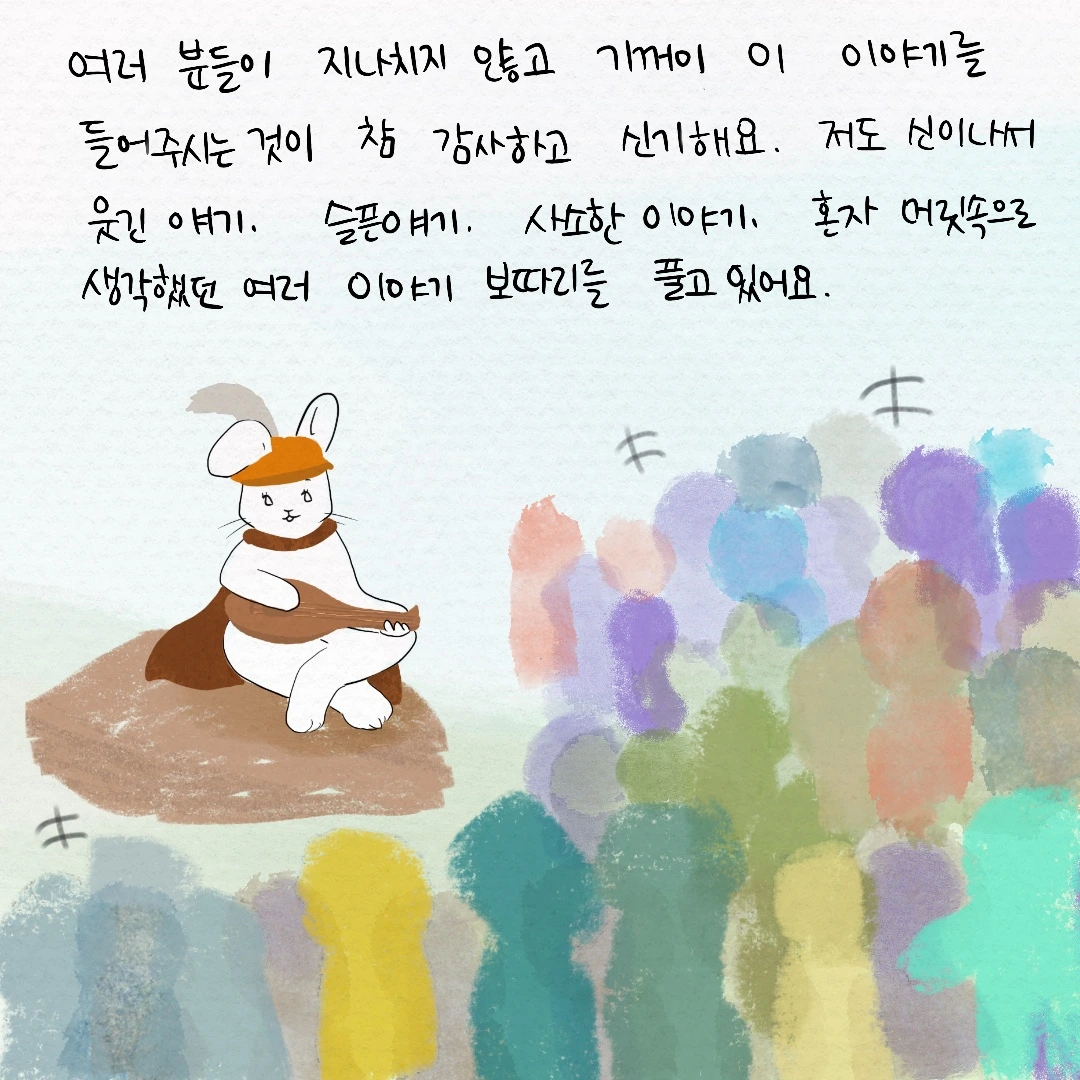 여러 분들이 지나치지 않고 기꺼이 이 이야기를
들어주시는 것이 참 감사하고 신기해요. 저도 신이나서
웃긴 얘기. 슬픈얘기. 사소한 이야기. 혼자 머릿속으로
생각했던 여러 이야기 보따리를 풀고 있어요.